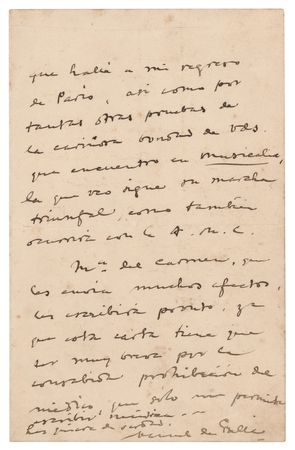 que hallé a mi regreso
de Paris, asi como por
tantas otras pruebas de
la cariñosa bondad de Vds.
que encuentro en musicalia,
la que veo sigue su marcha
triunfal, como también
ocurrirá con la A. M. C.
Mª. del Carmen, que
les envía muchos afectos,
les escribirá pronto, ya
que esta carta tiene que
ser muy breve por la
consabida prohibición de
médico, que solo me permite
escribir
les quiere de verdad.
Manuel de Falla